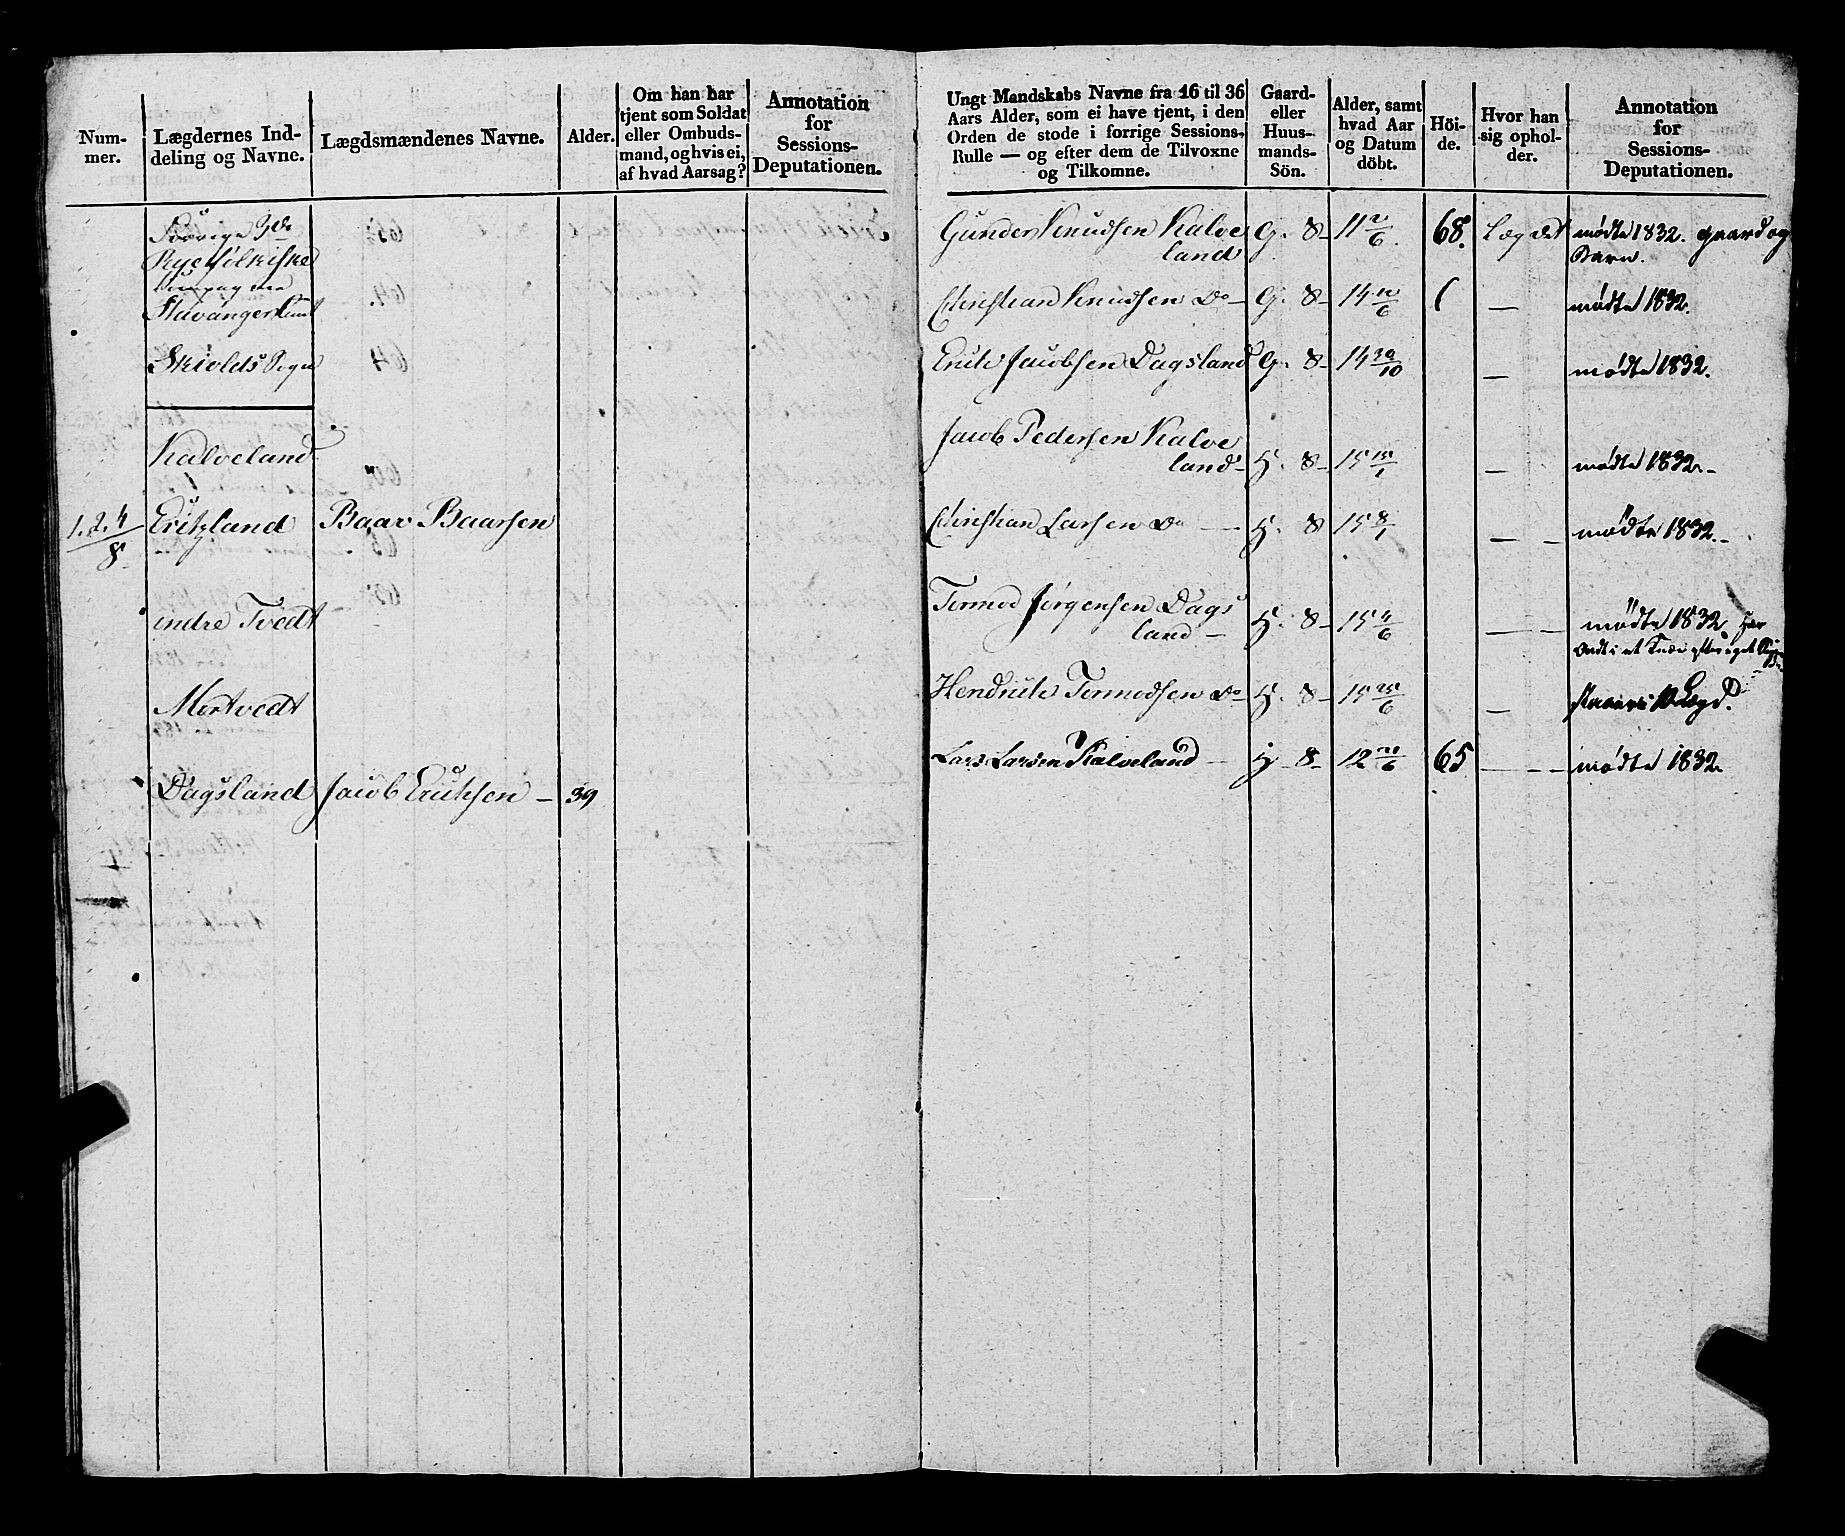 Num-
mer.
Lægdernes Ind-
deling og Navne.
Lægdsmændenes Navne.
Alder.
Om han har
tjent som Soldat
eller Ombuds-
mand, og hvis ei,
af hvad Aarsag?
Annotation
for
Sessions-
Deputationen.
3de
Ryefølkiske
Stavanger Amt
Skiolds Sogn
Kalveland
1.2.4/8 Eritzland Baar Baarsen
indre Tvedt
Mortvedt
Dagsland Jacob Eriksen – 39
Ungt Mandskabs Navne fra 16 til 36
Aars Alder, som ei have tjent, i den
Orden de stode i forrige Sessions-
Rulle — og efter dem de Tilvoxne
og Tilkomne.
Gaard-
eller
Huus-
mands-
Sön.
Alder, samt
hvad Aar
og Datum
döbt.
Höi-
de.
Hvor han
sig ophol-
der.
Annotation
for
Sessions-
Deputationen.
Gunder Knudsen Kalve G. 8 – 11 2/6 68. Lægdet mødte 1832. gaard og
land Barn.
Christian Knudsen Do – G. 8 – 14 12/6 — mødte 1832.
Erik Jacobsen Dagsland G. 8 – 14 30/10 — mødte 1832.
Jacob Pedersen Kalve
land – H. 8 – 15 15/1 — mødte 1832 –
Christian Larsen Do — H. 8 15 8/1 — – mødte 1832. –
Tormod Jørgensen Dags
land – H. 8 – 15 4/6 — — mødte 1832. har
Ondt i et Knæ efter eget
Hendrik Tormodsen Do H. 8 – 15 25/6 — Lægd.
Lars Larsen Kalveland – H – 8 – 12 21/6 65 — – – mødte 1832.